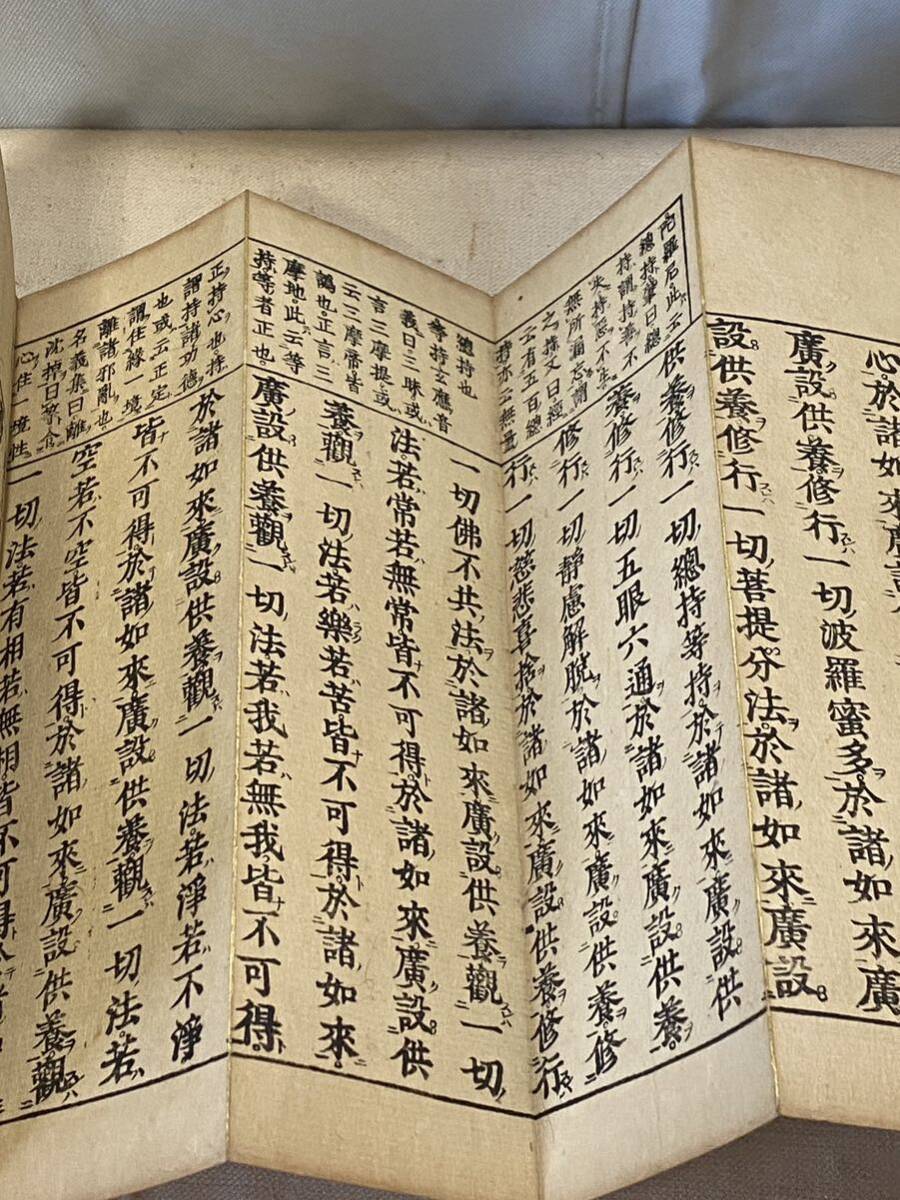 心於諸如來廣設
廣設供養修行一切波羅蜜多於諸如來廣
設供養修行一切菩提分法於諸如來廣設
陀羅尼此云
總持肇曰總
持謂持善不
失持惡不生
無所漏忘謂
之持又曰經
云有五百總
持亦云無量
供養修行一切總持等持於諸如來廣設供
養修行一切五眼六通於諸如來廣設供養
修行一切靜慮解脫於諸如來廣設供養修
行一切慈悲喜捨於諸如來廣設供養修行
總持也
等持玄應音
義曰三昧或
言三摩提或
云三摩帝皆
譌也正言三
摩地此云等
持等者正也
一切佛不共法於諸如來廣設供養觀一切
法若常若無常皆不可得於諸如來廣設供
養觀一切法若樂若苦皆不可得於諸如來
廣設供養觀一切法若我若無我皆不可得
正持心也持
謂持諸功德
也或云正定
謂住緣一境
離諸邪亂也
名義集曰離
沈掉曰等令
心住一境性
於諸如來廣設供養觀一切法若淨若不淨
皆不可得於諸如來廣設供養觀一切法若
空若不空皆不可得於諸如來廣設供養觀
一切法若有相若無相皆不可得